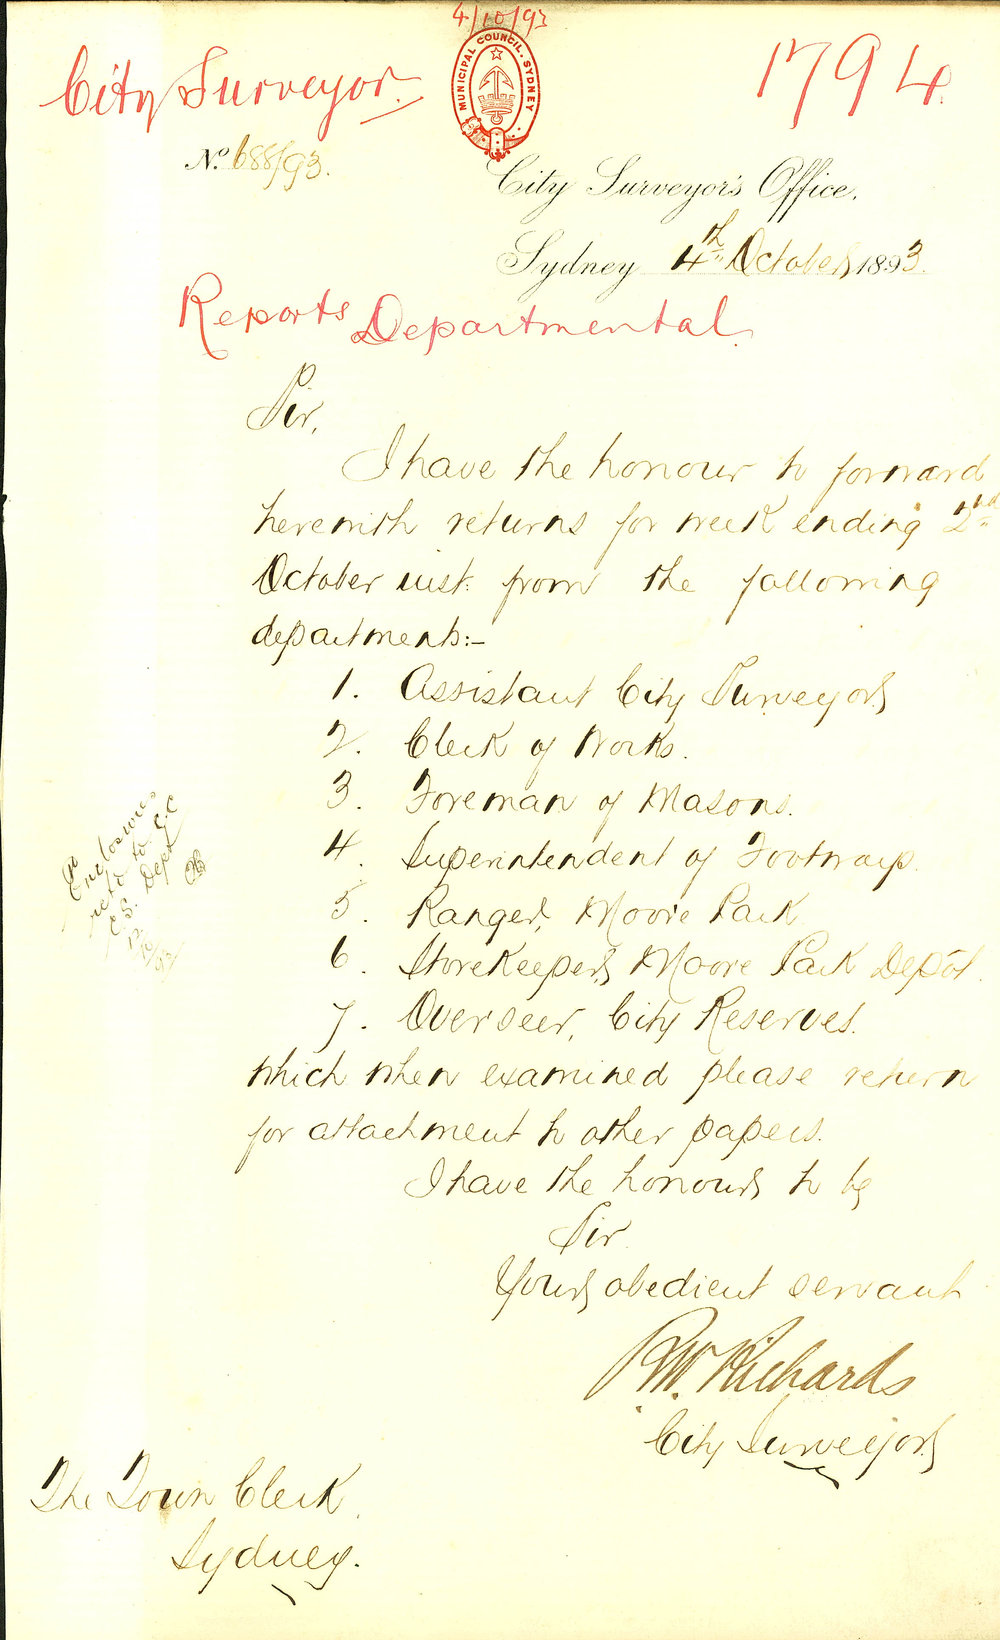 4/10/93
City Surveyor.
MUNICIPAL COUNCIL. SYDNEY
1794.
No. 688/93.
City Surveyor's Office,
Sydney 4th October 1893.
Reports Departmental.
Sir,
I have the honour to forward
herewith returns for week ending 2nd
October inst. from the following
departments:-
1. Assistant City Surveyor
2. Clerk of Works.
3. Foreman of Masons.
4. Superintendent of Footways.
5. Ranger, Moore Park
6. Storekeeper, Moore Park Depôt.
7. Overseer, City Reserves.
which when examined please return
for attachment to other papers.
I have the honour to be
Sir
Your obedient servant
R.W. Richards
City Surveyor
Enclosures
retd to
C.S. Dept
The Town Clerk.
Sydney.